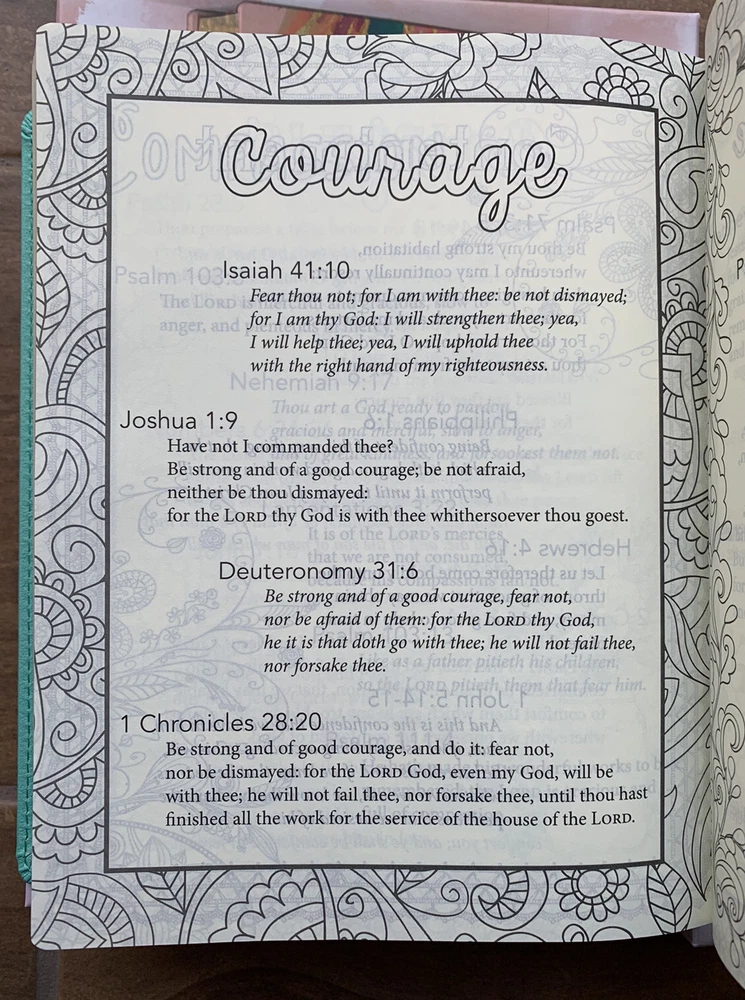 Courage
Isaiah 41:10
Fear thou not; for I am with thee: be not dismayed;
for I am thy God: I will strengthen thee; yea,
I will help thee; yea, I will uphold thee
with the right hand of my righteousness.
Joshua 1:9
Have not I commanded thee?
Be strong and of a good courage; be not afraid,
neither be thou dismayed:
for the LORD thy God is with thee whithersoever thou goest.
Deuteronomy 31:6
Be strong and of a good courage, fear not,
nor be afraid of them: for the LORD thy God,
he it is that doth go with thee; he will not fail thee,
nor forsake thee.
1 Chronicles 28:20
Be strong and of good courage, and do it: fear not,
nor be dismayed: for the LORD God, even my God, will be
with thee; he will not fail thee, nor forsake thee, until thou hast
finished all the work for the service of the house of the LORD.